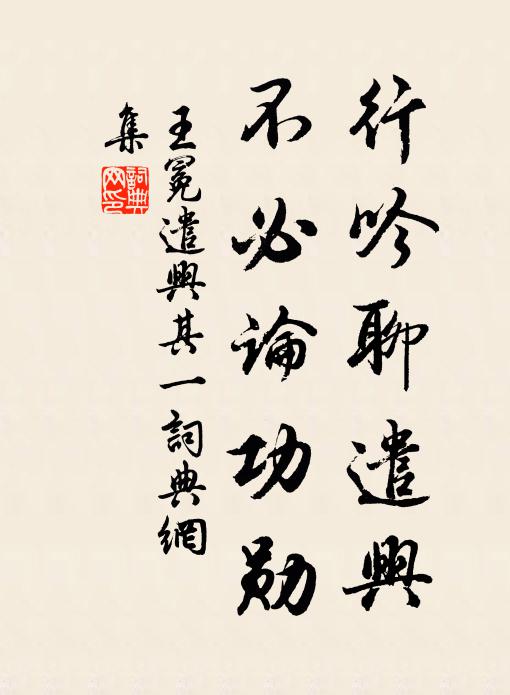 行吟聊遣興
不必論功勋
王冕遣興其一詞典網
集
詞典
网印